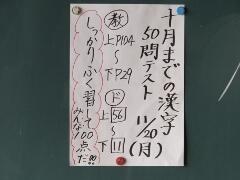 十月までの漢字
50問テスト 11/20(月)
教 上P104
〜
下P29
ド 上56
〜
下11
しっかりふく習して
みんな100点だ!!